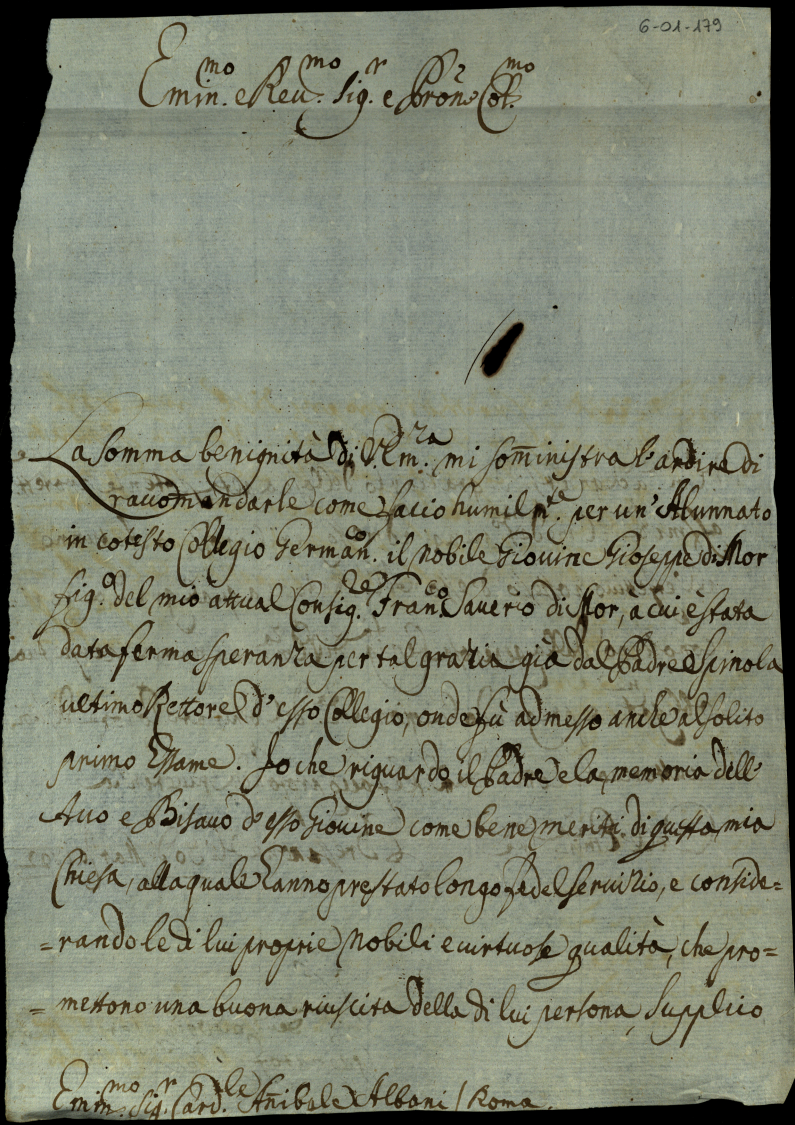 6-01-179
Emin.mo e Reu.mo Sig.r e Pron Col.mo
La somma benignità di V. Em.za mi soministra l'ardire di
raccomandarle come faccio humilm.te per un' Alunnato
in cotesto Collegio German.co il nobile Giovine Gioseppe di Mor
fig.o del mio attual Consig.re Fran.co Saverio di Mor, à cui è stata
data ferma speranza per tal grazia già dal Padre Spinola
ultimo Rettore d'esso Collegio, onde fù admesso anche al solito
primo Essame. Io che riguardo il Padre e la memoria dell'
Avo e Bisavo d'esso Giovine come bene meriti di questa mia
Chiesa, alla quale hanno prestato longo fedel servizio, e conside=
=rando le di lui proprie nobili e virtuose qualità, che pro=
=mettono una buona riuscita della di lui persona, supplico
Emin.mo Sig.r Card.le Anibale Albani / Roma.